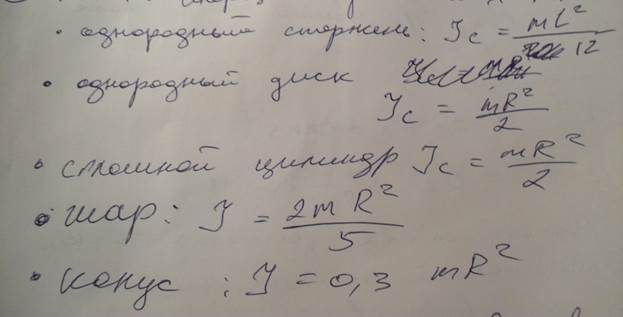 • однородный стержень: Jc = mL²/12
• однородный диск
Jc = mR²/2
• сплошной цилиндр Jc = mR²/2
• шар: J = 2mR²/5
• конус : J = 0,3 mR²